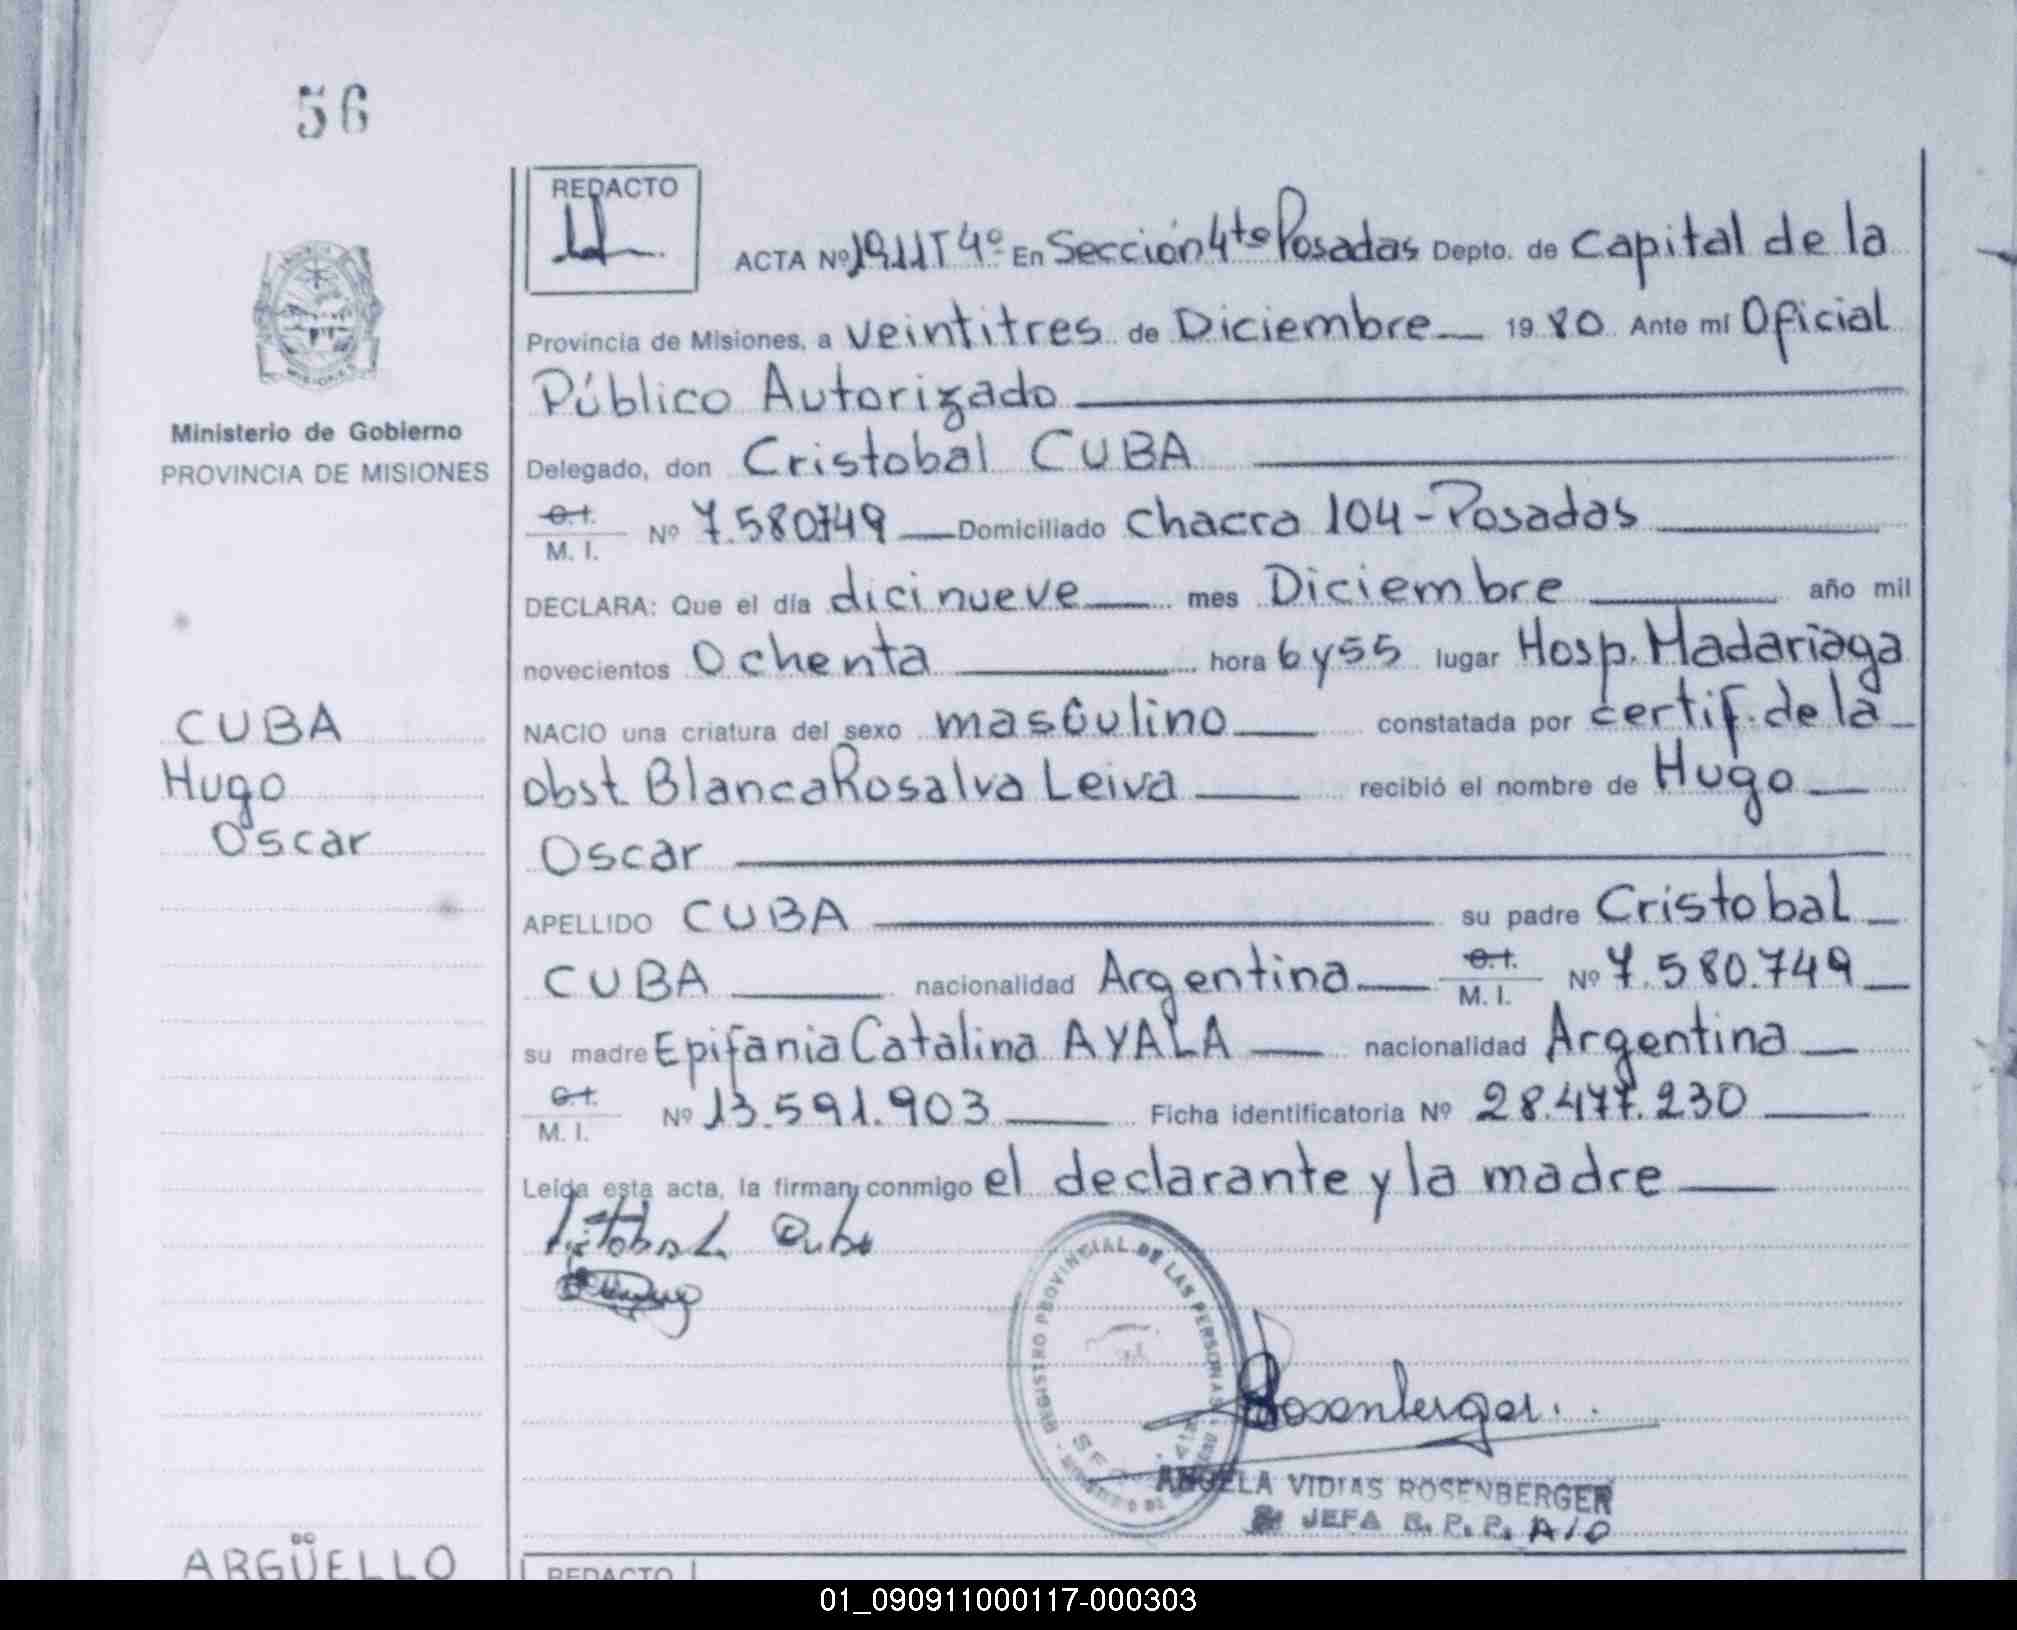 56
REDACTO
ACTA Nº 1911 T 4º En Sección 4ta Posadas Depto. de Capital de la
Provincia de Misiones, a veintitres de Diciembre 1980 Ante mí Oficial
Público Autorizado
Ministerio de Gobierno
PROVINCIA DE MISIONES
Delegado, don Cristobal CUBA
C.I.
M. I. Nº 7.580749 Domiciliado Chacra 104 - Posadas
DECLARA: Que el día dicinueve mes Diciembre año mil
novecientos Ochenta hora 6 y 55 lugar Hosp. Madariaga
CUBA
Hugo
Oscar
NACIO una criatura del sexo masculino constatada por certif. de la
obst. Blanca Rosalva Leiva recibió el nombre de Hugo
Oscar
APELLIDO CUBA su padre Cristobal
CUBA nacionalidad Argentina C.I.
M. I. Nº 7.580.749
su madre Epifania Catalina AYALA nacionalidad Argentina
C.I.
M. I. Nº 13.591.903 Ficha identificatoria Nº 28.477.230
Leída esta acta, la firman conmigo el declarante y la madre
Cristobal Cuba
REGISTRO PROVINCIAL DE LAS PERSONAS
Rosenberger
ANGELA VIDIAS ROSENBERGER
JEFA R. P. P. A/C
ARGÜELLO
REDACTO
01_090911000117-000303